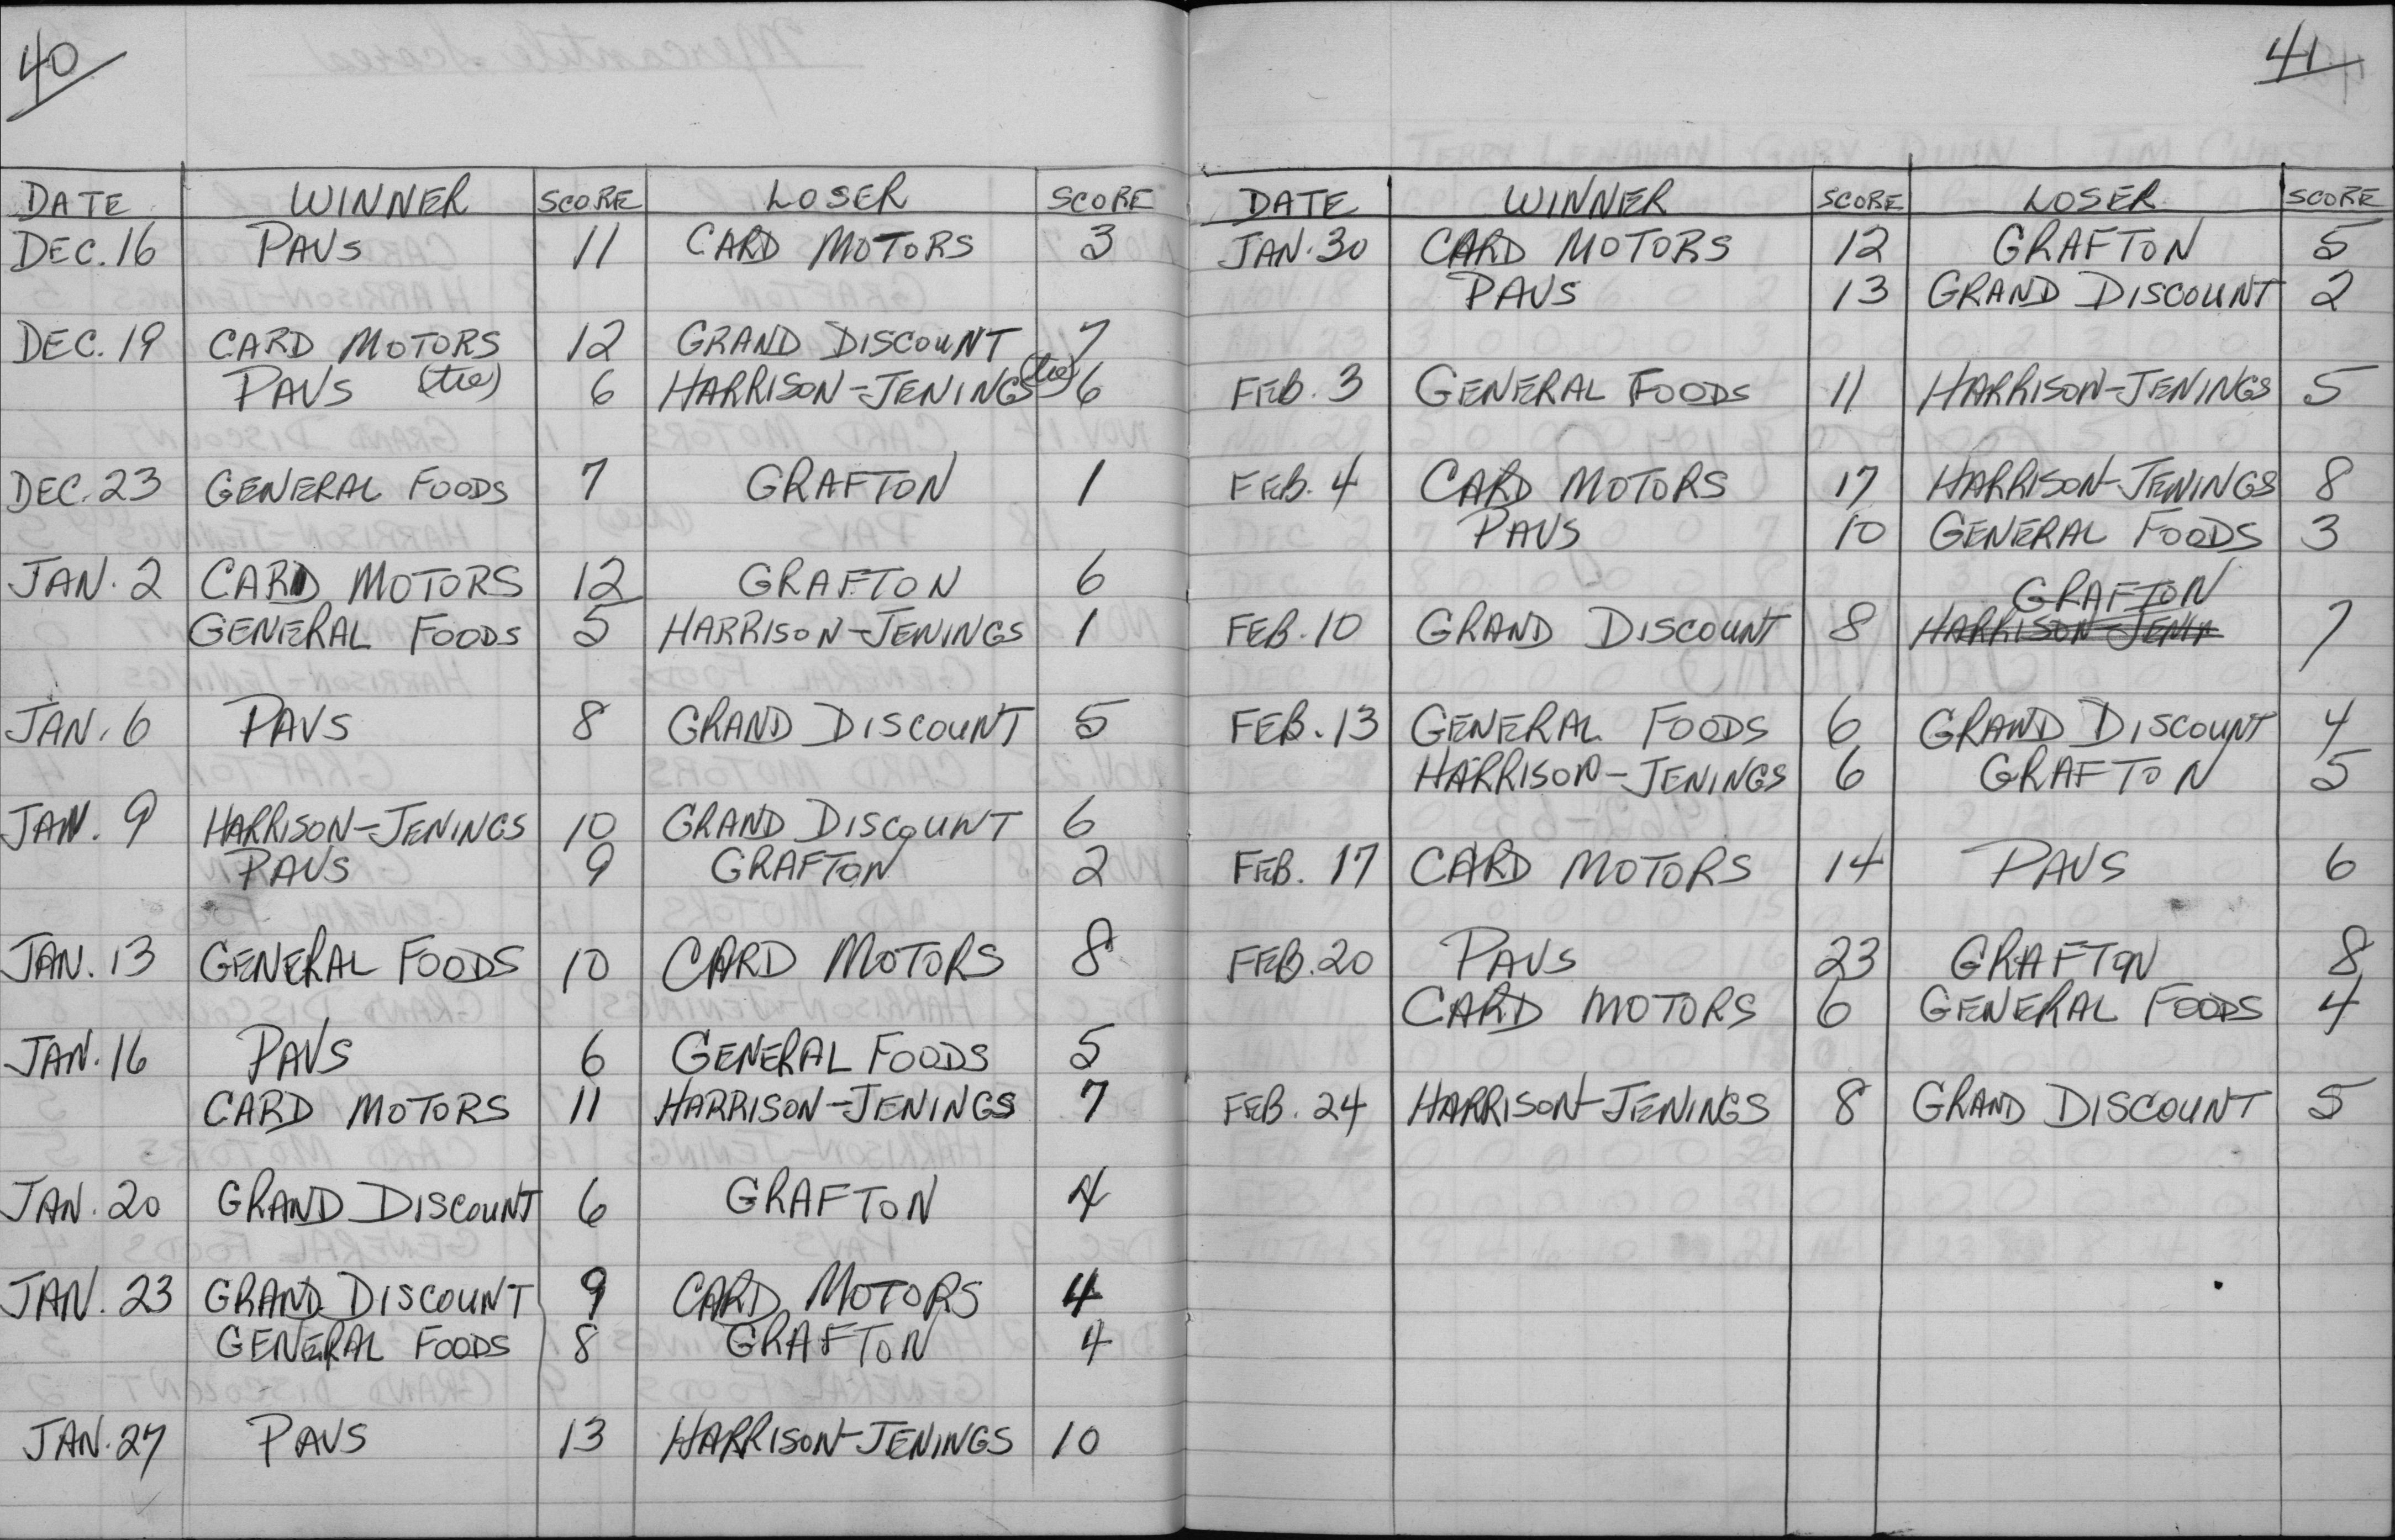 40
DATE WINNER SCORE LOSER SCORE
DEC. 16 PAVS 11 CARD MOTORS 3
DEC. 19 CARD MOTORS 12 GRAND DISCOUNT 7
PAVS (tie) 6 HARRISON-JENINGS (tie) 6
DEC. 23 GENERAL FOODS 7 GRAFTON 1
JAN. 2 CARD MOTORS 12 GRAFTON 6
GENERAL FOODS 5 HARRISON-JENINGS 1
JAN. 6 PAVS 8 GRAND DISCOUNT 5
JAN. 9 HARRISON-JENINGS 10 GRAND DISCOUNT 6
PAVS 9 GRAFTON 2
JAN. 13 GENERAL FOODS 10 CARD MOTORS 8
JAN. 16 PAVS 6 GENERAL FOODS 5
CARD MOTORS 11 HARRISON-JENINGS 7
JAN. 20 GRAND DISCOUNT 6 GRAFTON 4
JAN. 23 GRAND DISCOUNT 9 CARD MOTORS 4
GENERAL FOODS 8 GRAFTON 4
JAN. 27 PAVS 13 HARRISON-JENINGS 10
41
DATE WINNER SCORE LOSER SCORE
JAN. 30 CARD MOTORS 12 GRAFTON 5
PAVS 13 GRAND DISCOUNT 2
FEB. 3 GENERAL FOODS 11 HARRISON-JENINGS 5
FEB. 4 CARD MOTORS 17 HARRISON-JENINGS 8
PAVS 10 GENERAL FOODS 3
GRAFTON
FEB. 10 GRAND DISCOUNT 8 HARRISON-JENIN 7
FEB. 13 GENERAL FOODS 6 GRAND DISCOUNT 4
HARRISON-JENINGS 6 GRAFTON 5
FEB. 17 CARD MOTORS 14 PAVS 6
FEB. 20 PAVS 23 GRAFTON 8
CARD MOTORS 6 GENERAL FOODS 4
FEB. 24 HARRISON-JENINGS 8 GRAND DISCOUNT 5